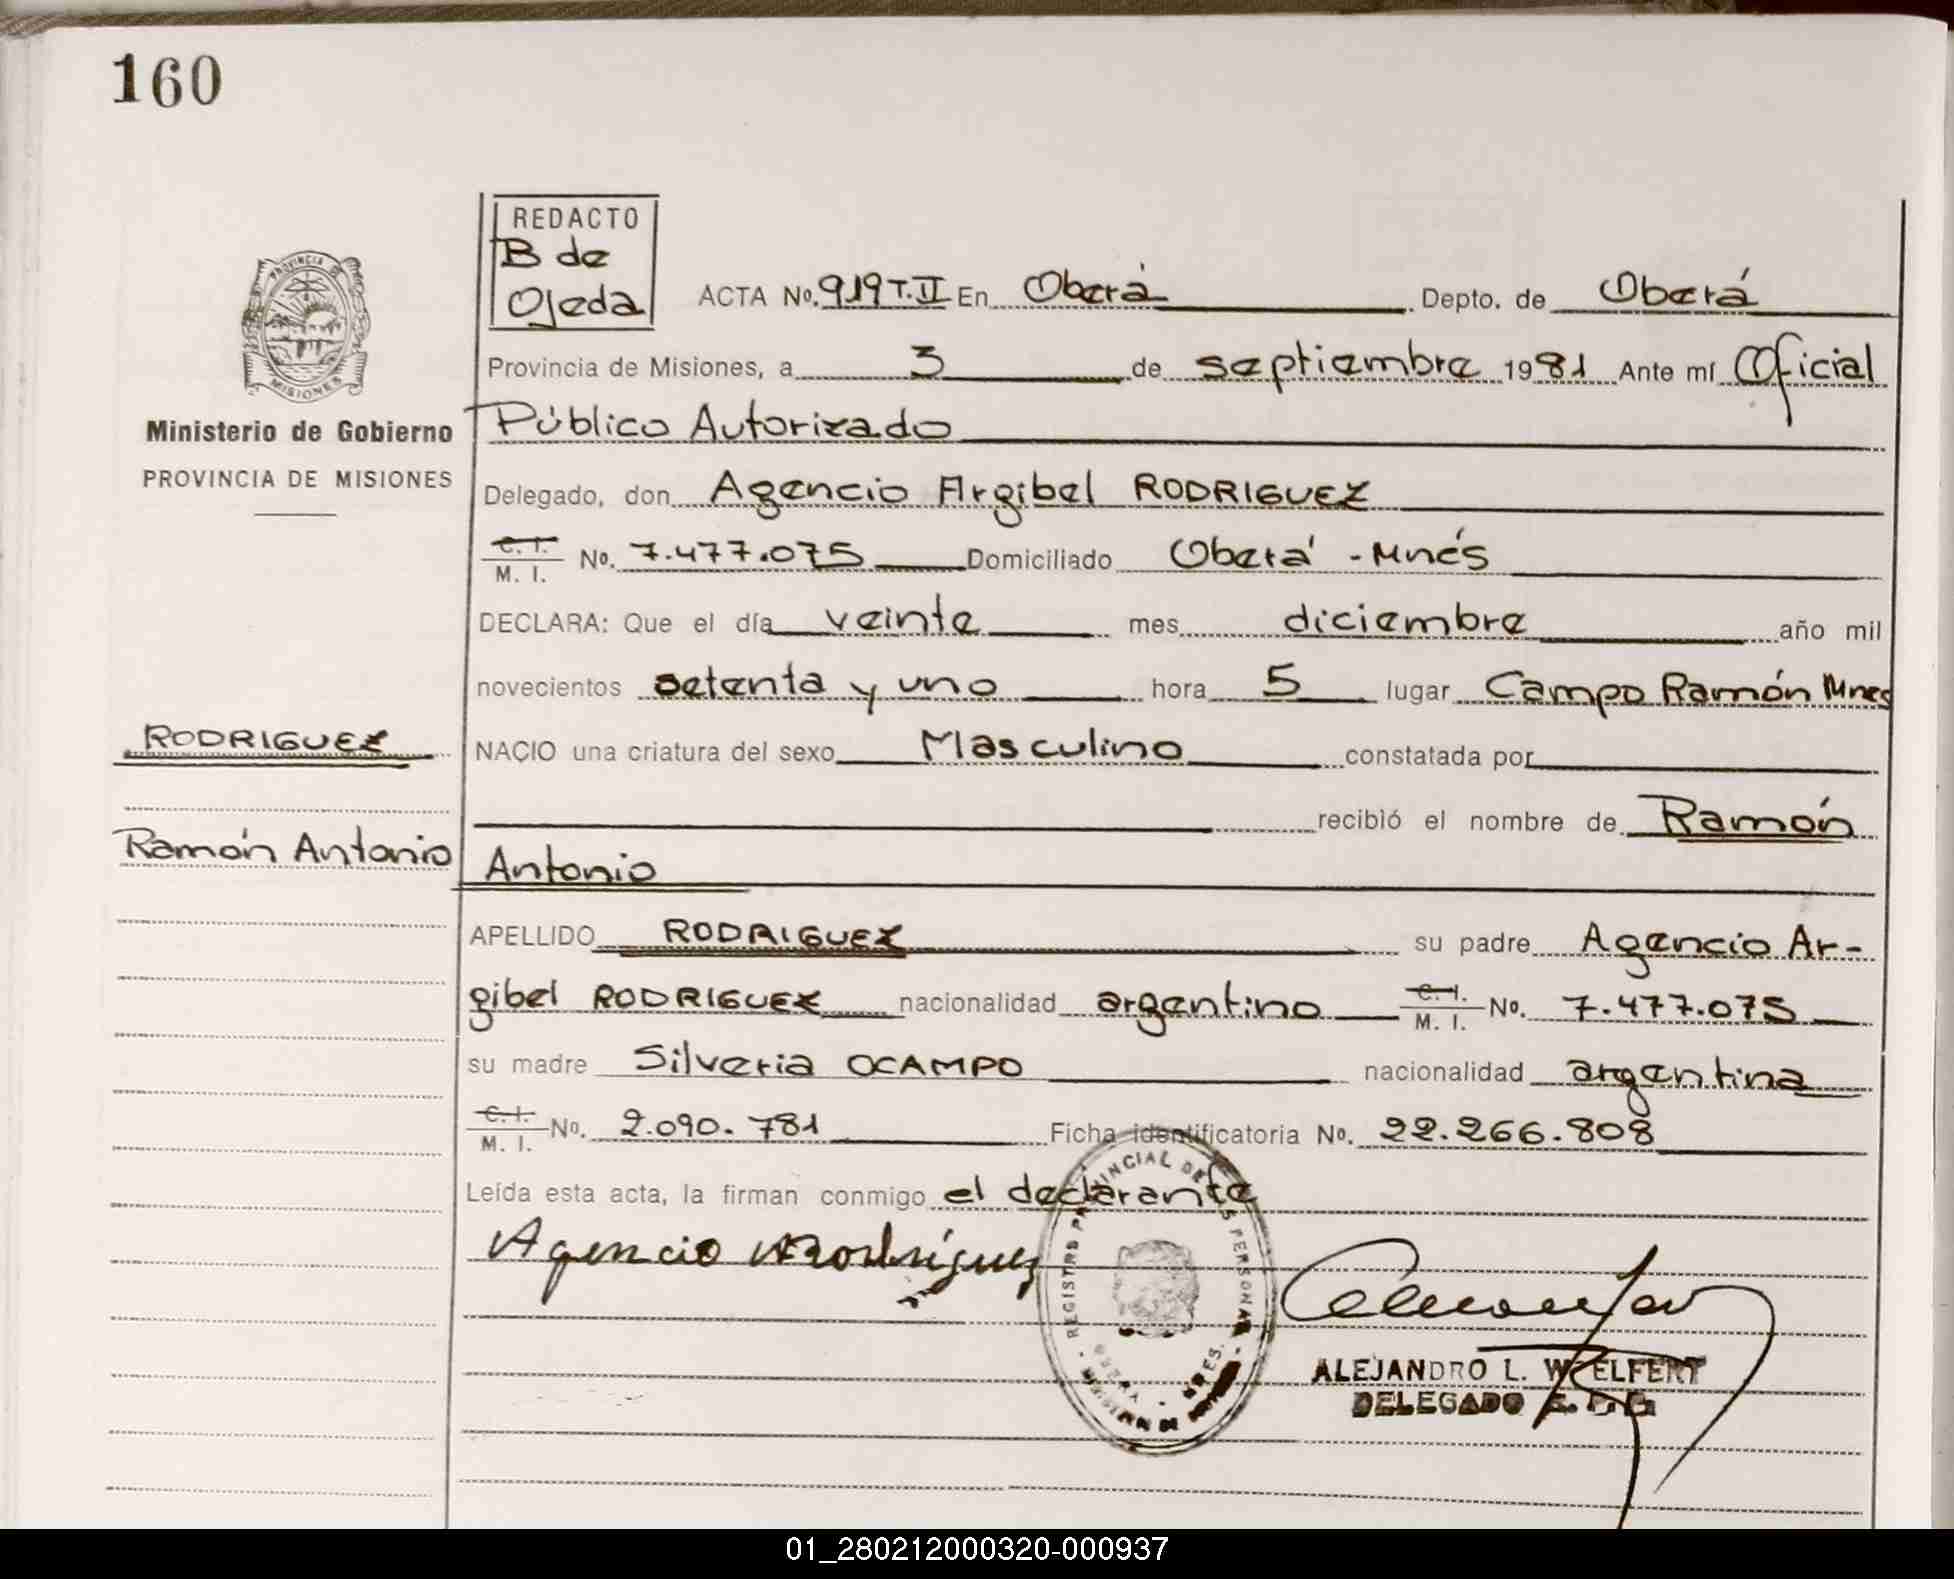 160
REDACTO
B de
Ojeda
ACTA No. 919 T. II En Oberá Depto. de Oberá
Provincia de Misiones, a 3 de septiembre 1981 Ante mí Oficial
Público Autorizado
Delegado, don Agencio Argibel RODRIGUEZ
C. I.
M. I. No. 7.477.075 Domiciliado Oberá - Mnés
DECLARA: Que el día veinte mes diciembre año mil
novecientos setenta y uno hora 5 lugar Campo Ramón Mnes
NACIO una criatura del sexo Masculino constatada por
recibió el nombre de Ramón
Antonio
APELLIDO RODRIGUEZ su padre Agencio Ar-
gibel RODRIGUEZ nacionalidad argentino C. I. M. I. No. 7.477.075
su madre Silveria OCAMPO nacionalidad argentina
C. I.
M. I. No. 2.090.781 Ficha identificatoria No. 22.266.808
Leída esta acta, la firman conmigo el declarante
Agencio A Rodríguez
ALEJANDRO L. WELFERT
DELEGADO
REGISTRO PROVINCIAL DE LAS PERSONAS
PROVINCIA DE
MISIONES
Ministerio de Gobierno
PROVINCIA DE MISIONES
RODRIGUEZ
Ramón Antonio
01_280212000320-000937